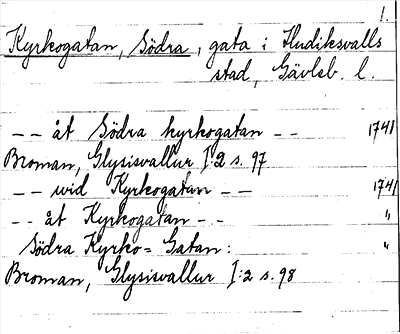 1.
Kyrkogatan, Södra, gata i Hudiksvalls
stad, Gävleb. l.
-- åt Södra kyrkogatan -- 1741
Broman, Glysisvallur I:2 s. 97
-- wid Kyrkogatan -- 1741
-- åt Kyrkogatan -- "
Södra Kyrko= Gatan: "
Broman, Glysisvallur I:2 s. 98